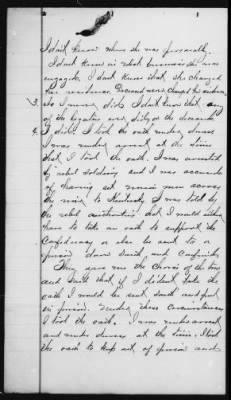 I don't know where she was personally.
I don't know in what business she was
engaged. I don't know that she changed
her residence.
3. As I never did. I don't know that any
of the
4. I did. I took the oath under duress
I was under arrest at the time
that I took the oath. I was arrested
by rebel soldiers and I was accused
of having set men across
the river to Kentucky. I was told by
the rebel authorities that I would either
have to take an oath to support the
Confederacy or else be sent to a
prison down South and confined.
They gave me the choice of the two
and said that if I didn't take the
oath I would be sent South and put
in prison. Under these circumstances
I took the oath. I was under arrest
and under duress at the time. I took
the oath to keep out of prison and